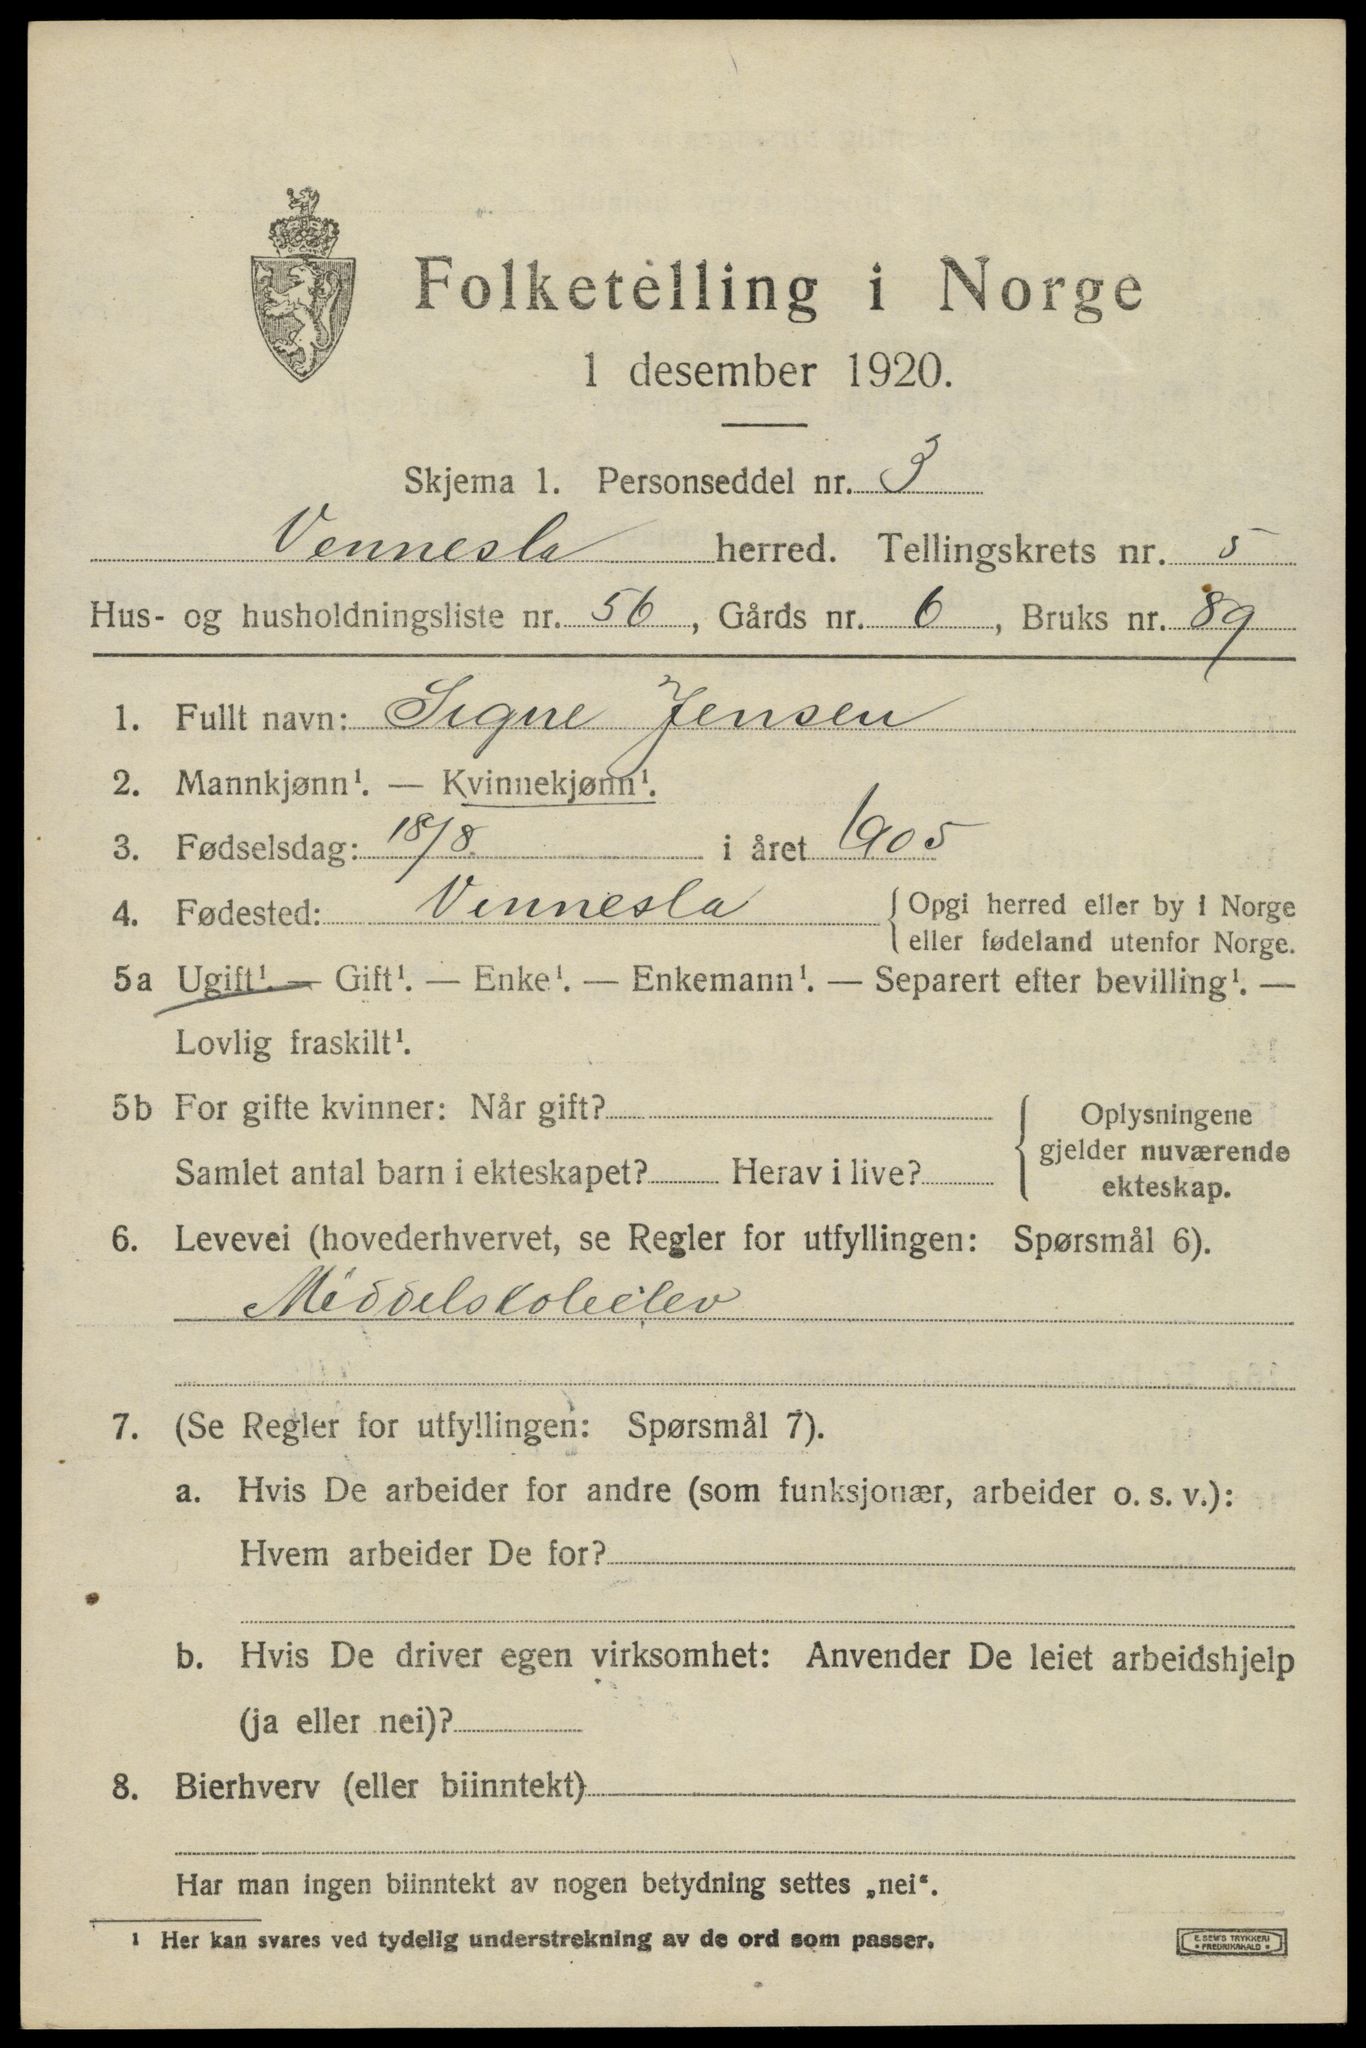 Folketelling i Norge
1 desember 1920.
Skjema 1. Personseddel nr. 3
Vennesla herred. Tellingskrets nr. 5
Hus- og husholdningsliste nr. 56, Gårds nr. 6, Bruks nr. 89
1. Fullt navn: Signe Jensen
2. Mannkjønn¹. — Kvinnekjønn¹.
3. Fødselsdag: 18/8 i året 1905
4. Fødested: Vennesla {Opgi herred eller by i Norge
eller fødeland utenfor Norge.
5a Ugift¹. — Gift¹. — Enke¹. — Enkemann¹. — Separert efter bevilling¹. —
Lovlig fraskilt¹.
5b For gifte kvinner: Når gift?
Samlet antal barn i ekteskapet? Herav i live?
{Oplysningene
gjelder nuværende
ekteskap.
6. Levevei (hovederhvervet, se Regler for utfyllingen: Spørsmål 6).
Middelskoleelev
7. (Se Regler for utfyllingen: Spørsmål 7).
a. Hvis De arbeider for andre (som funksjonær, arbeider o. s. v.):
Hvem arbeider De for?
b. Hvis De driver egen virksomhet: Anvender De leiet arbeidshjelp
(ja eller nei)?
8. Bierhverv (eller biinntekt)
Har man ingen biinntekt av nogen betydning settes „nei“.
1 Her kan svares ved tydelig understrekning av de ord som passer.
E. SEM'S TRYKKERI
• FREDRIKSHALD •